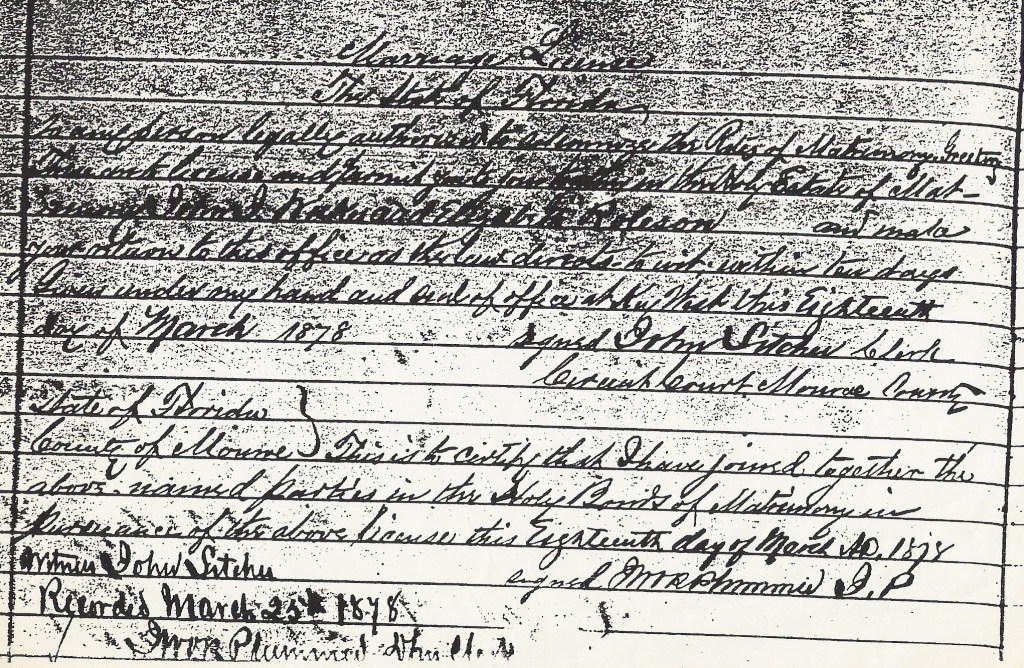 Marriage License
The State of Florida,
To any person legally authorized to solemnize the Rites of Matrimony. Greeting
These are to license and permit you to join together in the Holy Estate of Mat-
rimony John J. and Elizabeth Roberson and make
your return to this office as the law directs to wit, within ten days
Given under my hand and seal of office at Key West this Eighteenth
day of March 1878 signed John Clerk
Circuit Court Monroe County
State of Florida }
County of Monroe } This is to certify that I have joined together the
above named parties in the Holy Bonds of Matrimony in
pursuance of the above license this Eighteenth day of March AD. 1878
Witness John signed J.P
Recorded March 25th 1878
Plummer